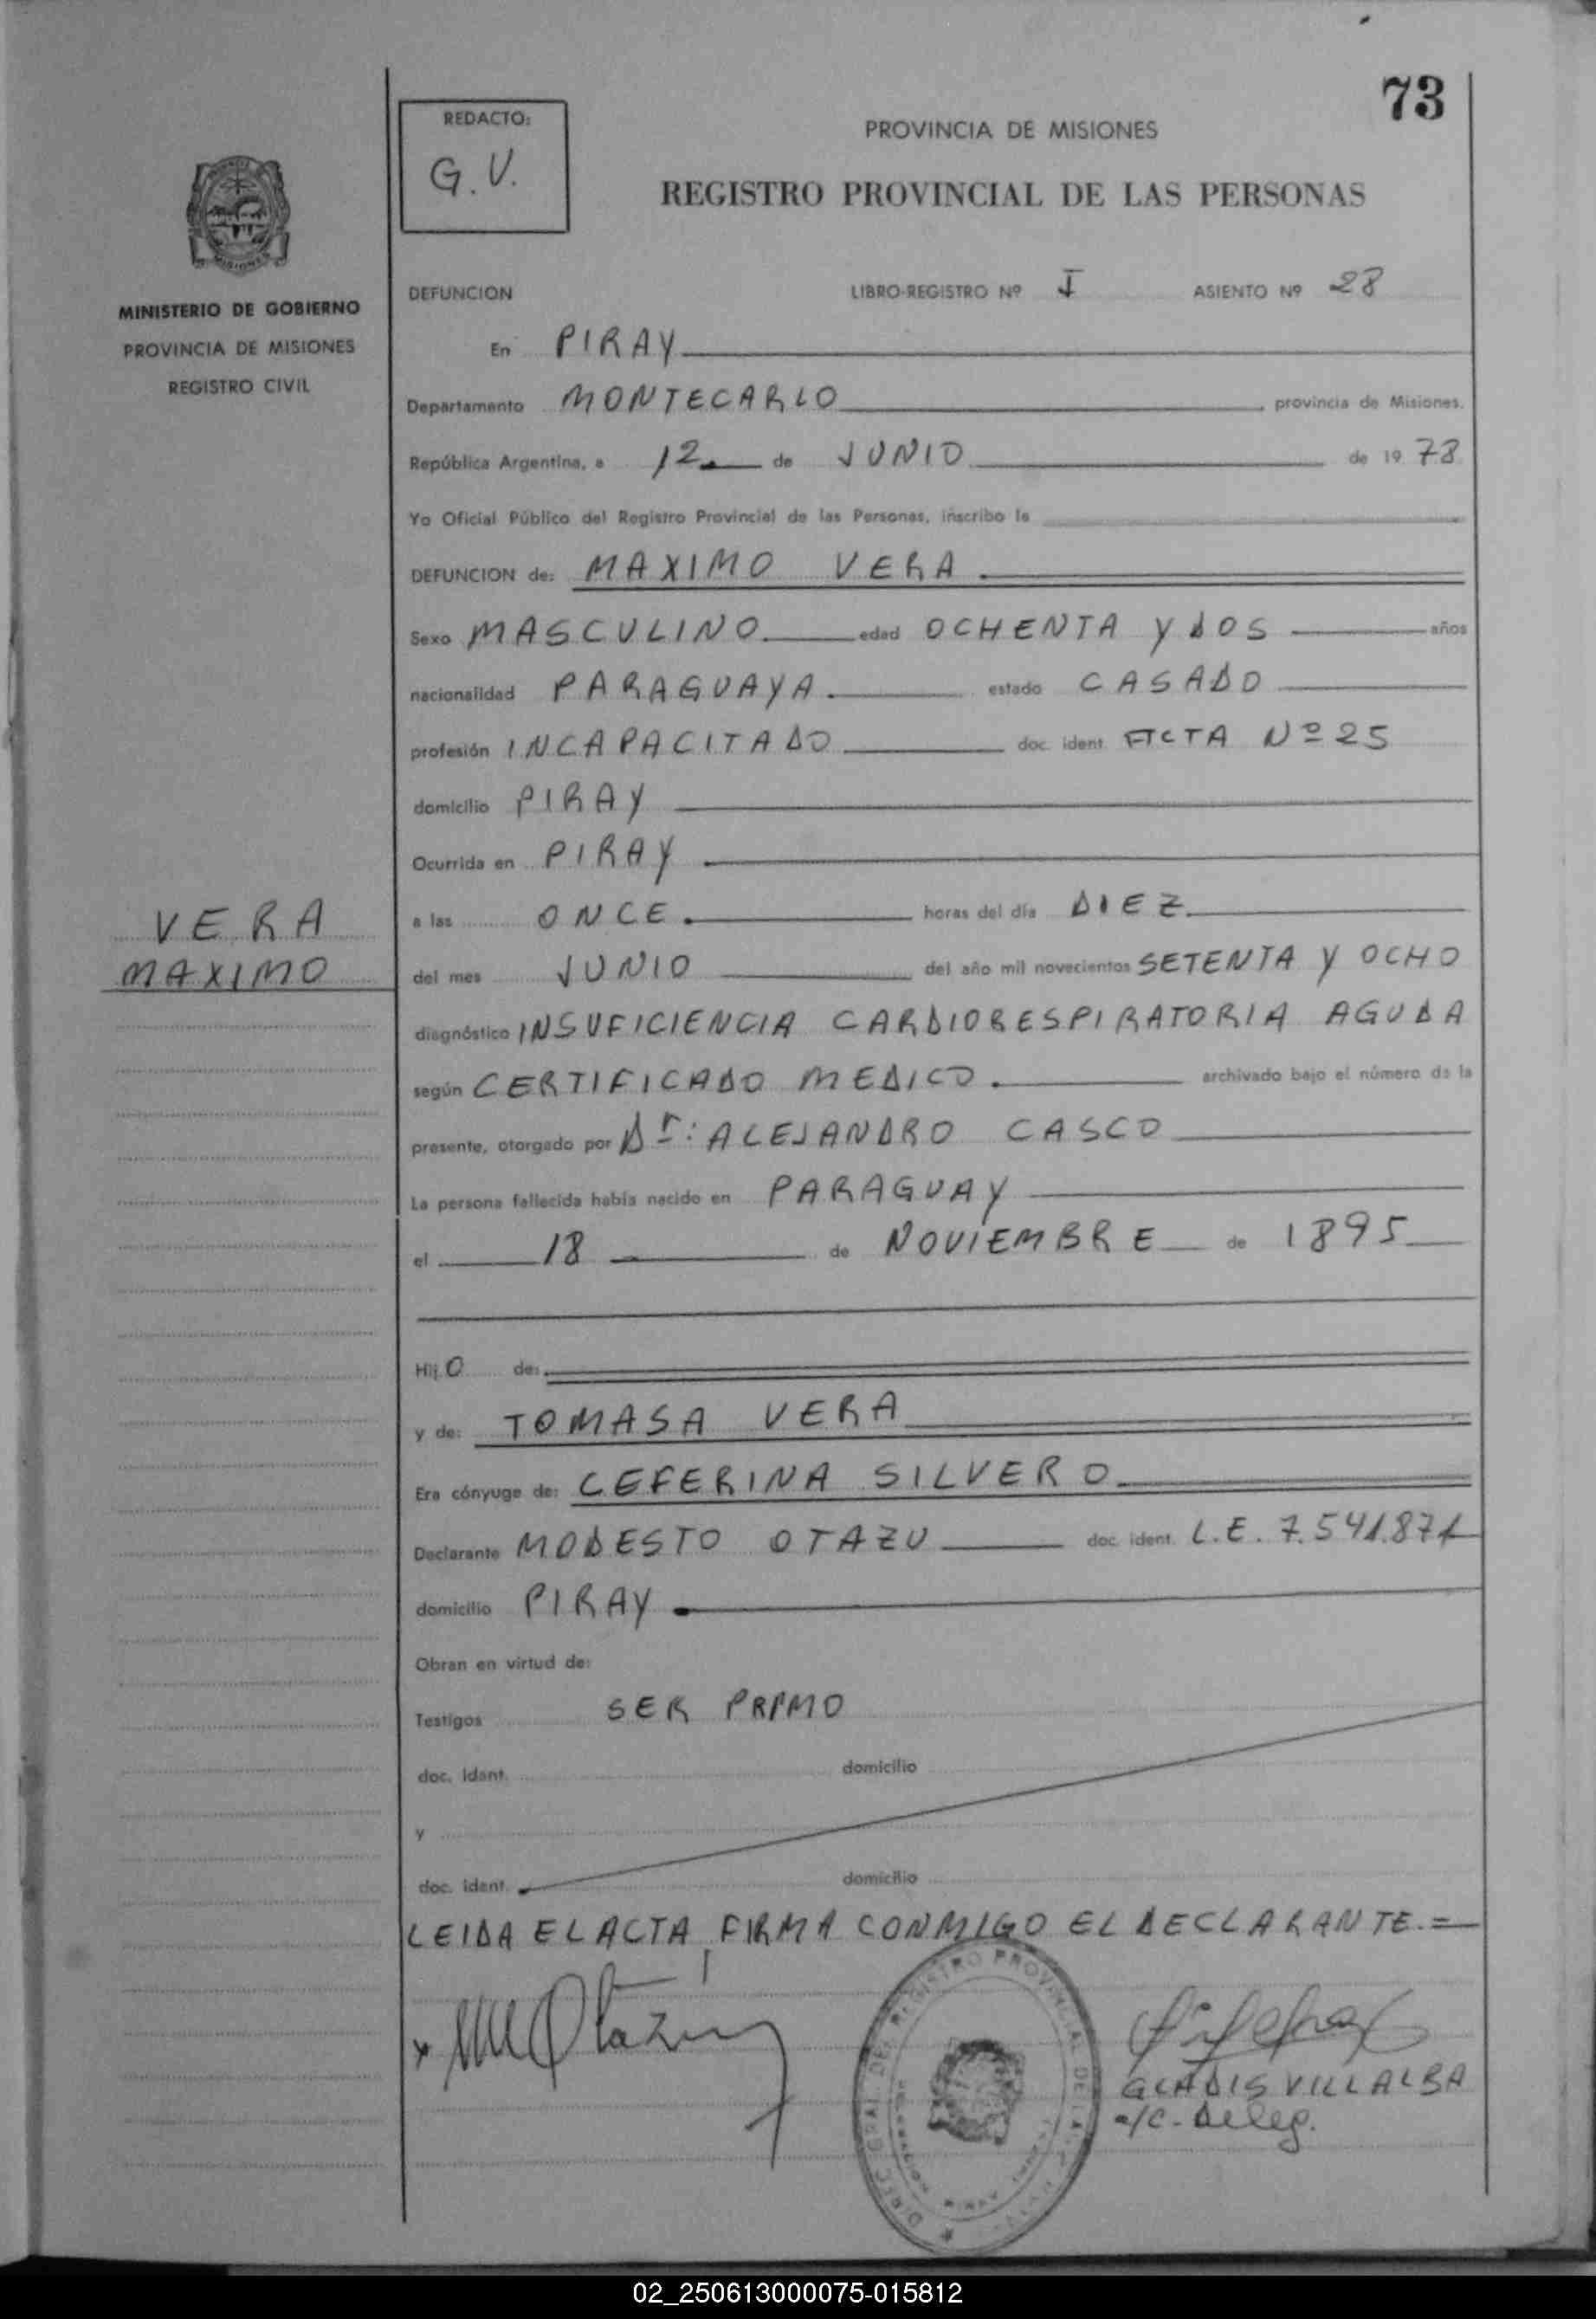 73
REDACTO:
G.V.
PROVINCIA DE MISIONES
REGISTRO PROVINCIAL DE LAS PERSONAS
MISIONES
MINISTERIO DE GOBIERNO
PROVINCIA DE MISIONES
REGISTRO CIVIL
DEFUNCION LIBRO-REGISTRO Nº I ASIENTO Nº 28
En PIRAY
Departamento MONTECARLO, provincia de Misiones.
República Argentina, a 12 de JUNIO de 19 78
Yo Oficial Público del Registro Provincial de las Personas, inscribo la
DEFUNCION de: MAXIMO VERA
Sexo MASCULINO edad OCHENTA Y DOS años
nacionalidad PARAGUAYA. estado CASADO
profesión INCAPACITADO doc. ident. ACTA Nº 25
domicilio PIRAY
Ocurrida en PIRAY
VERA
MAXIMO
a las ONCE. horas del día DIEZ
del mes JUNIO del año mil novecientos SETENTA Y OCHO
diagnóstico INSUFICIENCIA CARDIORESPIRATORIA AGUDA
según CERTIFICADO MEDICO. archivado bajo el número de la
presente, otorgado por Dr: ALEJANDRO CASCO
La persona fallecida había nacido en PARAGUAY
el 18 de NOVIEMBRE de 1895
Hij O de:
y de: TOMASA VERA
Era cónyuge de: CEFERINA SILVERO
Declarante MODESTO OTAZU doc. ident. L.E. 7.541.871
domicilio PIRAY.
Obran en virtud de:
Testigos SER PRIMO
doc. ident. domicilio
y
doc. ident. domicilio
LEIDA EL ACTA, FIRMA CONMIGO EL DECLARANTE.=
x Otazu
DIREC. GRAL. DEL REGISTRO PROVINCIAL DE LAS
GLADIS VILLALBA
a/c. Deleg.
02_250613000075-015812